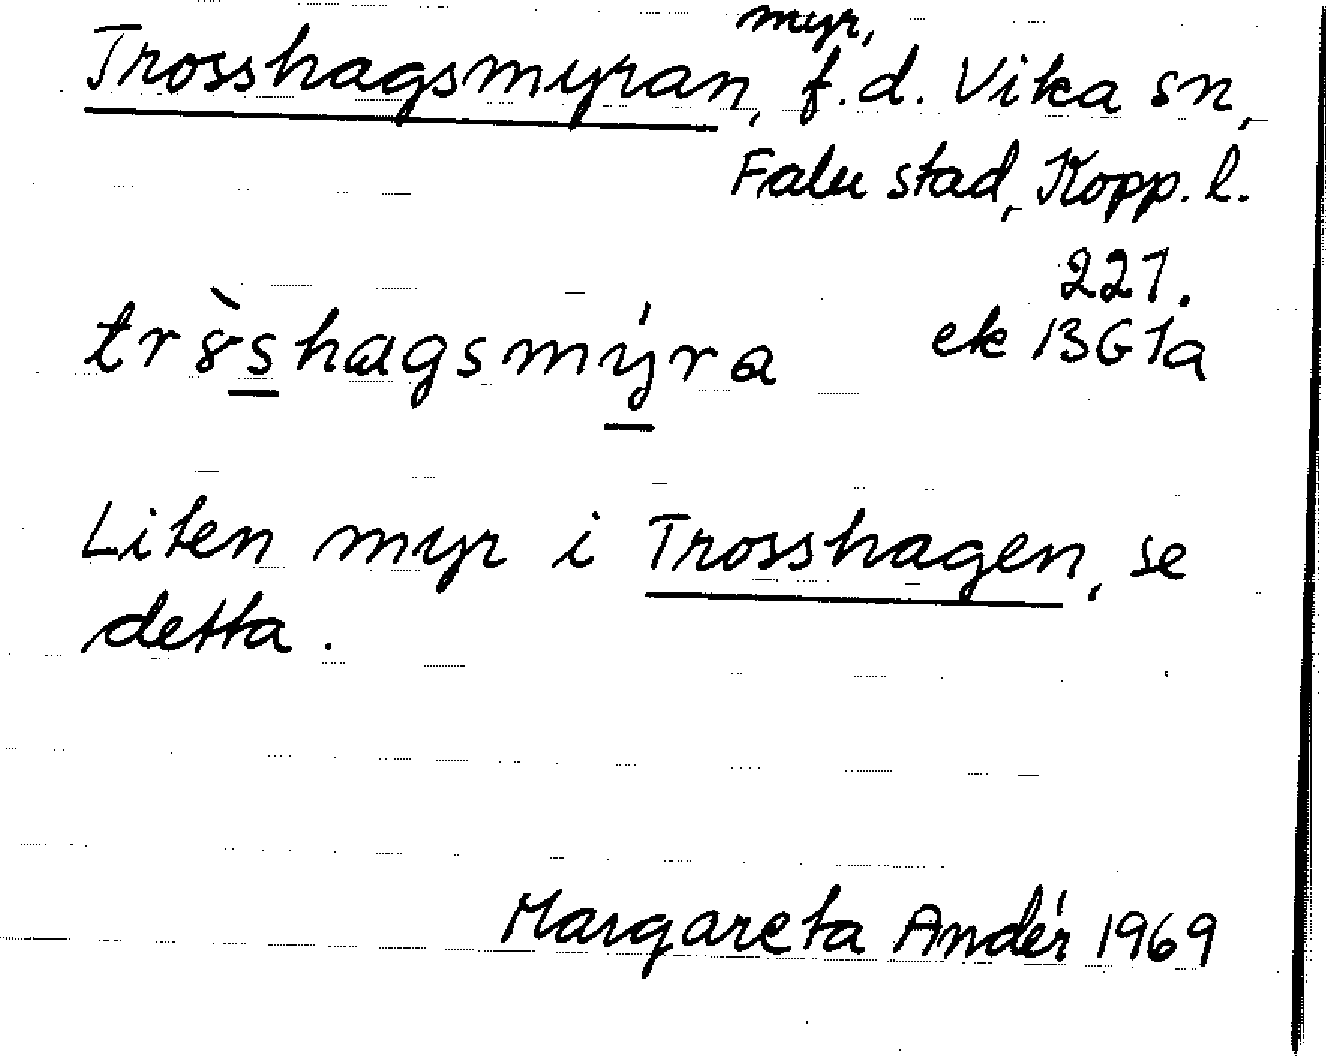 Trosshagsmyran, myr, f.d. Vika sn,
Falu stad, Kopp. l.
221.
tr8̀s̲hagsmý̲ra ek 13G1a
Liten myr i Trosshagen, se
detta.
Margareta Andér 1969